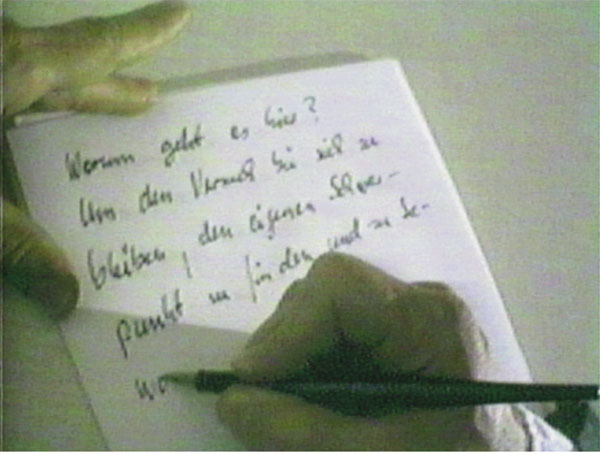 Worum geht es hier?
Um den Versuch bei sich zu
bleiben, den eigenen Schwer-
punkt zu finden und zu be-
wa